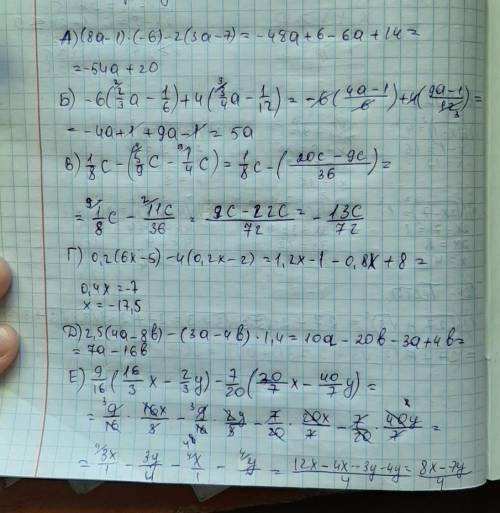 А) (8a-1)·(-6)-2(3a-7)=-48a+6-6a+14=
=-54a+20
Б) -6(2/3a-1/6)+4(3/4a-1/12)=-6(4a-1/6)+4(9a-1/12)=
=-4a+1+9a-1=5a
В) 1/8c-(5/9c-1/4c)=1/8c-(20c-9c/36)=
=1/8c-11c/36=9c-22c/72=-13c/72
Г) 0,2(6x-5)-4(0,2x-2)=1,2x-1-0,8x+8=
0,4x=-7
x=-17,5
Д) 2,5(4a-8b)-(3a-4b)·1,4=10a-20b-3a+4b=
=7a-16b
Е) 9/16(16/3x-2/3y)-7/20(20/7x-40/7y)=
=9/16·16x/3-9/16·8y/3-7/20·20x/7-7/20·40y/7=
=3x/1-3y/4-x/1-y=12x-4x-3y-4y/4=8x-7y/4